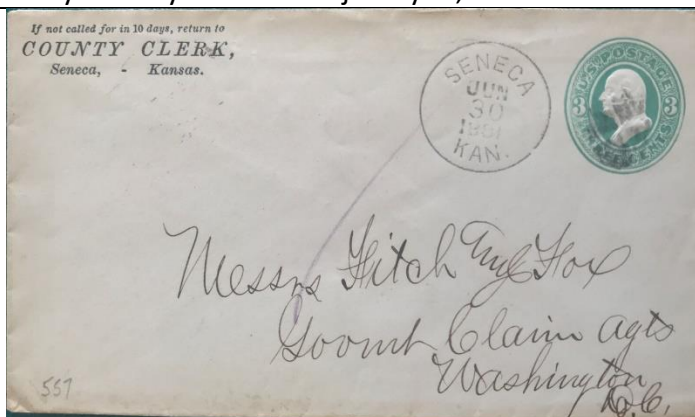 If not called for in 10 days, return to
COUNTY CLERK,
Seneca, - Kansas.
SENECA
JUN
30
1881
KAN.
U.S. POSTAGE
3 3
THREE CENTS
Messrs Fitch Fox
Govmt Claim Agts
Washington
D.C.
557